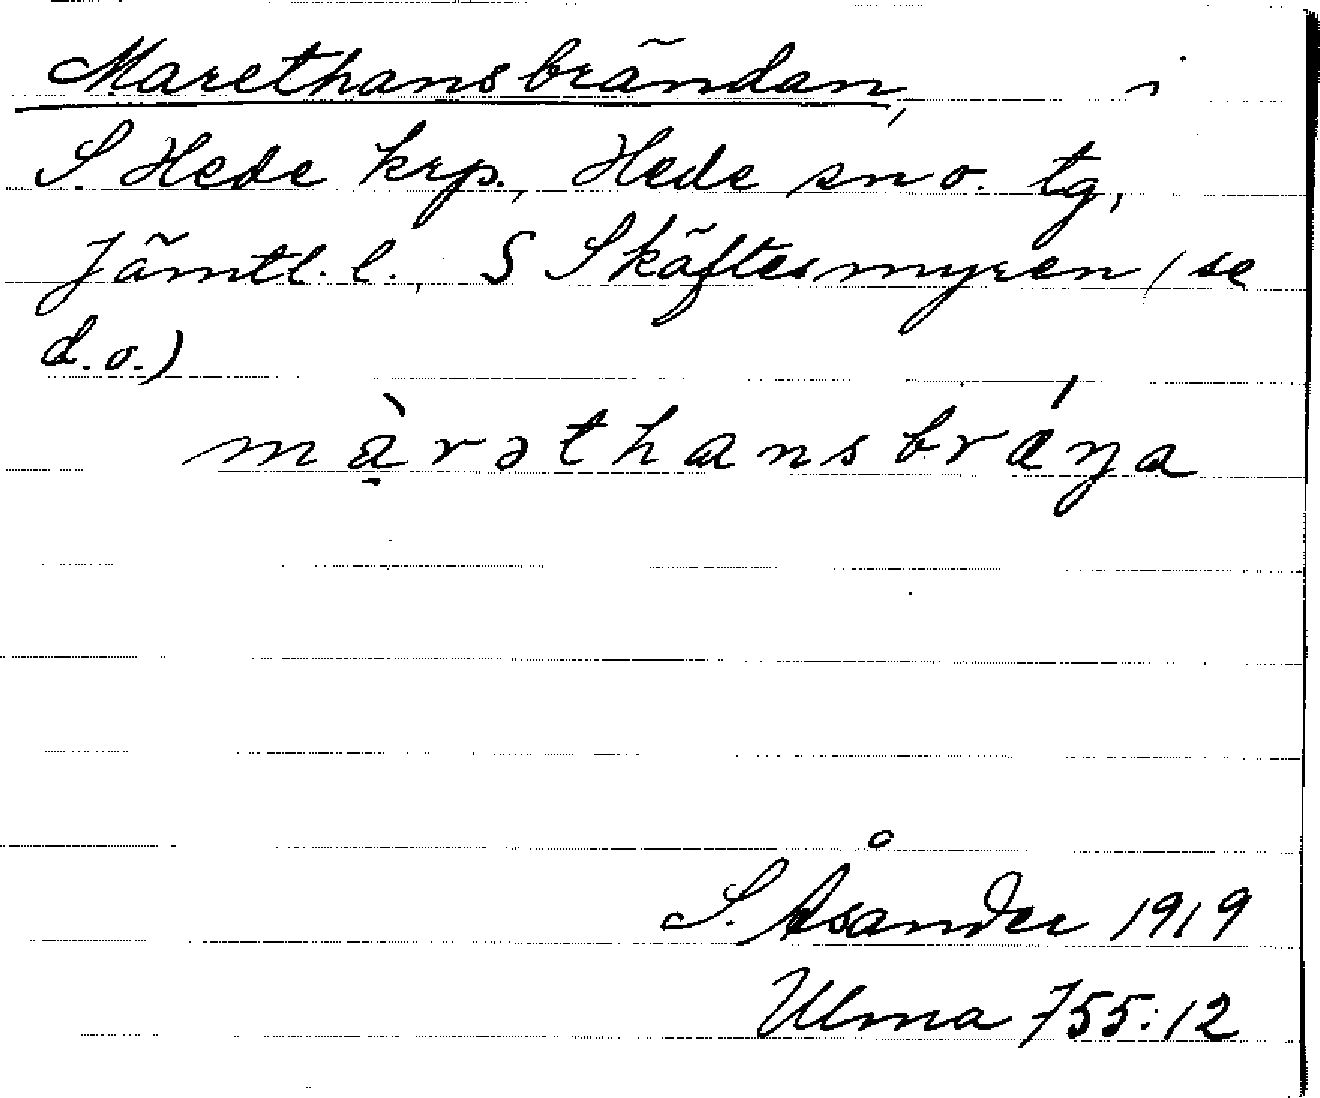 Marethansbrändan, i
S. Hede krp., Hede sn o. tg,
Jämtl. l., S Skäftesmyren (se
d. o.)
mạ̀rəthansbráŋa
S. Åsander 1919
Ulma 755:12